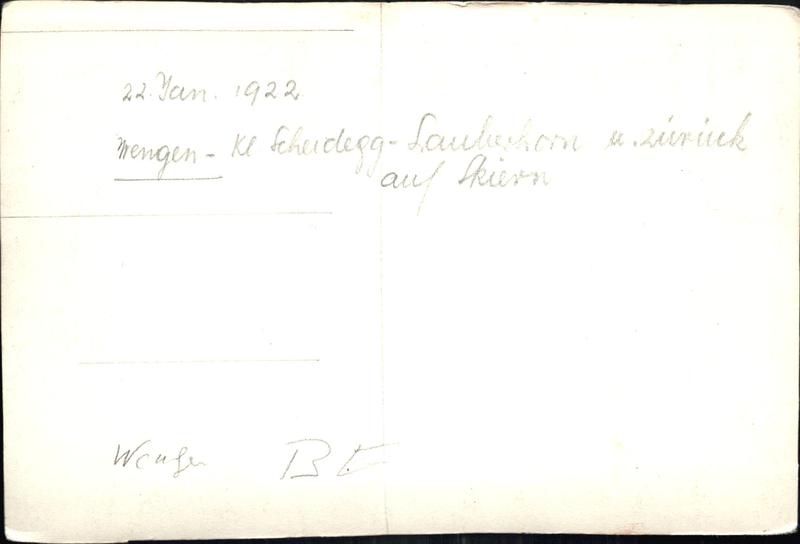 22. Jan. 1922
Wengen - Kl Scheidegg - Lauberhorn u. zurück
auf Skiern
Wengen BE